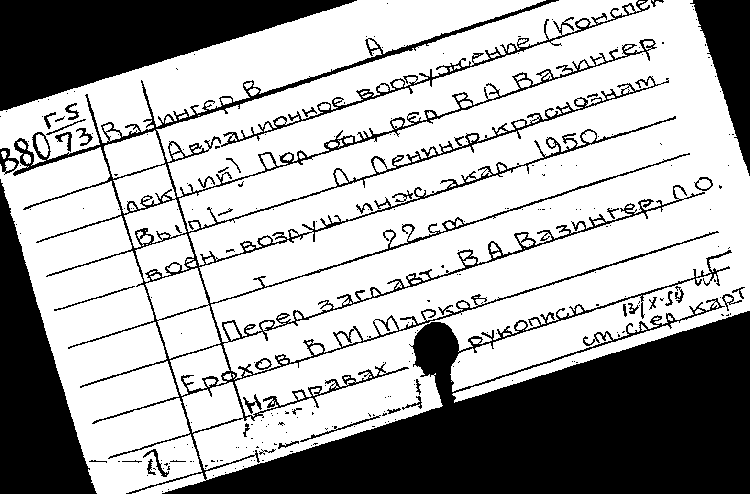 В80 Г-5/73
Вазингер, В А
Авиационное вооружение (Конспек
лекций). Под общ ред В А Вазингер.
Вып. 1- Л., Ленингр. краснознам.
воен-воздуш инж. акад., 1950.
т 22 cm
Перед заглавт: В.А. Вазингер, Л.О.
Ерохов, В М. Марков
На правах рукописи.
12/X-50
см. след карт